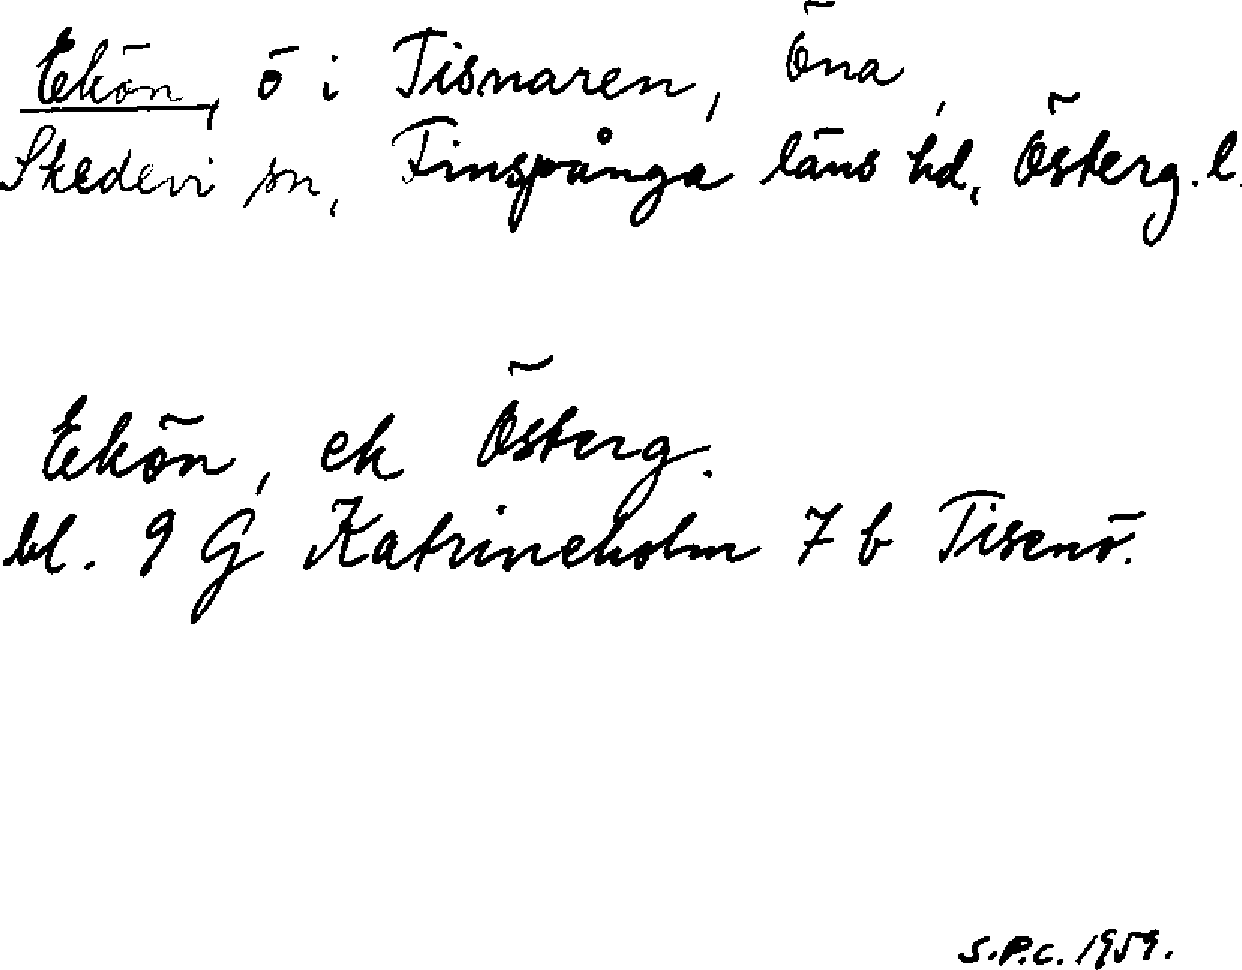 Ekön, ö i Tisnaren, Öna,
Skedevi sn, Finspånga läns hd, Österg. l.
Ekön, ek Österg.
bl. 9 G Katrineholm 7 b Tisenö.
S.P.C. 1959.